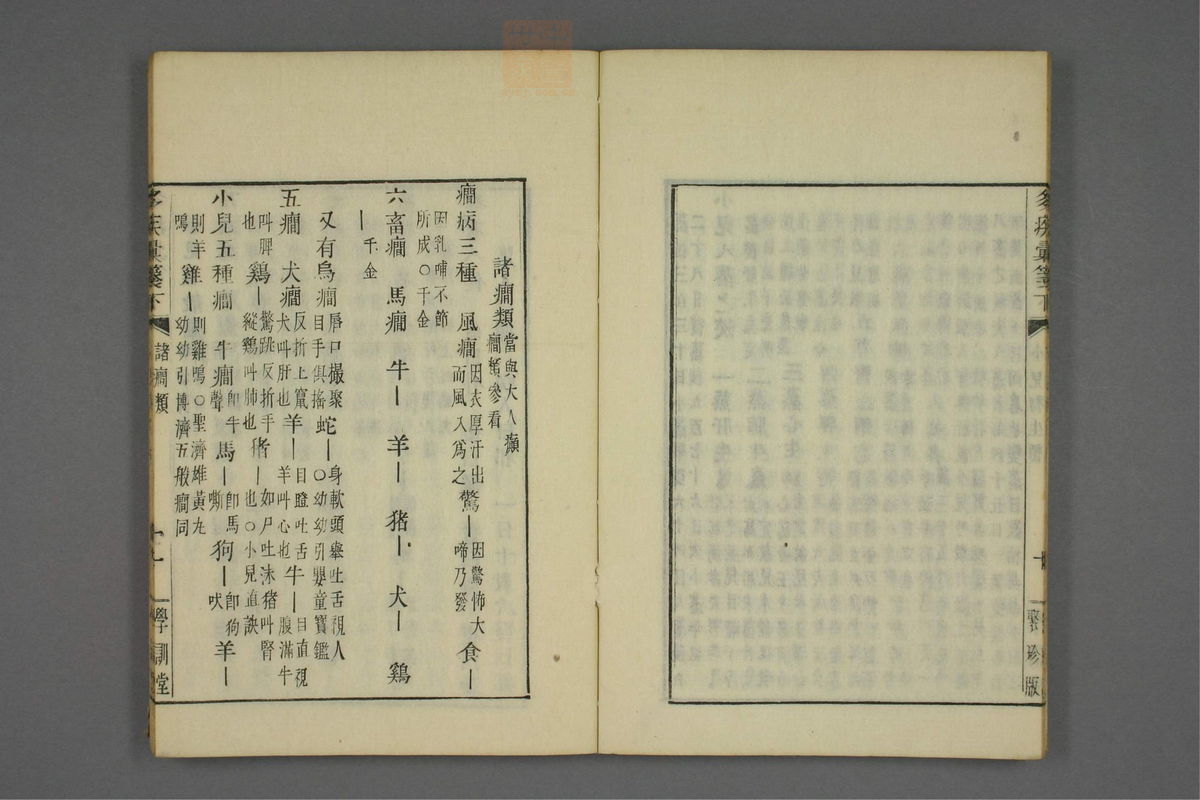 多疾彙箋下
十
聚珍版
諸癇類 當與大人癲
癇蟹參看
癇病三種 風癇 因衣厚汗出
而風入爲之 驚｜ 因驚怖大
啼乃發 食｜
因乳哺不節
所成○千金
六畜癇 馬癇 牛｜ 羊｜ 猪｜ 犬｜ 鷄
｜ 千金
又有烏癇 唇口撮聚
目手俱搖 蛇｜ 身軟頭舉吐舌視人
○幼幼引嬰童寶鑑
五癇 犬癇 反折上竄
犬呌肝也 羊｜ 目瞪吐舌
羊呌心也 牛｜ 目直視
腹滿牛
呌脾
也 鷄｜ 驚跳反折手
縱鷄呌肺也 猪｜ 如尸吐沫猪呌腎
也○小兒直訣
小兒五種癇 牛癇 卽牛
聲 馬｜ 卽馬
嘶 狗｜ 卽狗
吠 羊｜
則羊
鳴 雞｜ 則雞鳴○聖濟雄黃丸
幼幼引博濟五般癇同
多疾彙箋下
諸癇類
十一
學訓堂